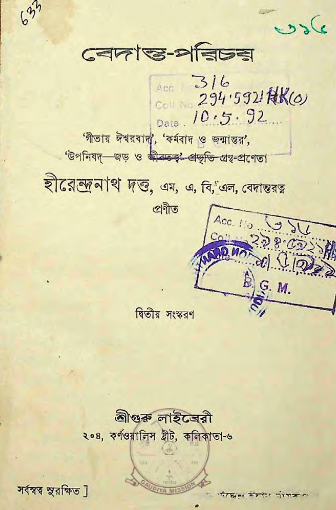 633
৩১৬
বেদান্ত-পরিচয়
Acc. No. 316
Coll No. 294.592/HK(0)
Data 10.5.92
'গীতায় ঈশ্বরবাদ', 'কর্মবাদ ও জন্মান্তর',
'উপনিষদ—জড় ও জীবতত্ত্ব' প্রভৃতি গ্রন্থ-প্রণেতা
হীরেন্দ্রনাথ দত্ত, এম, এ, বি, এল, বেদান্তরত্ন
প্রণীত
Acc. No. ৩১৬
B. G. M.
দ্বিতীয় সংস্করণ
শ্রীগুরু লাইব্রেরী
২০৪, কর্ণওয়ালিস স্ট্রীট, কলিকাতা-৬
GAUDIYA MISSION
সর্বস্বত্ব সুরক্ষিত ]